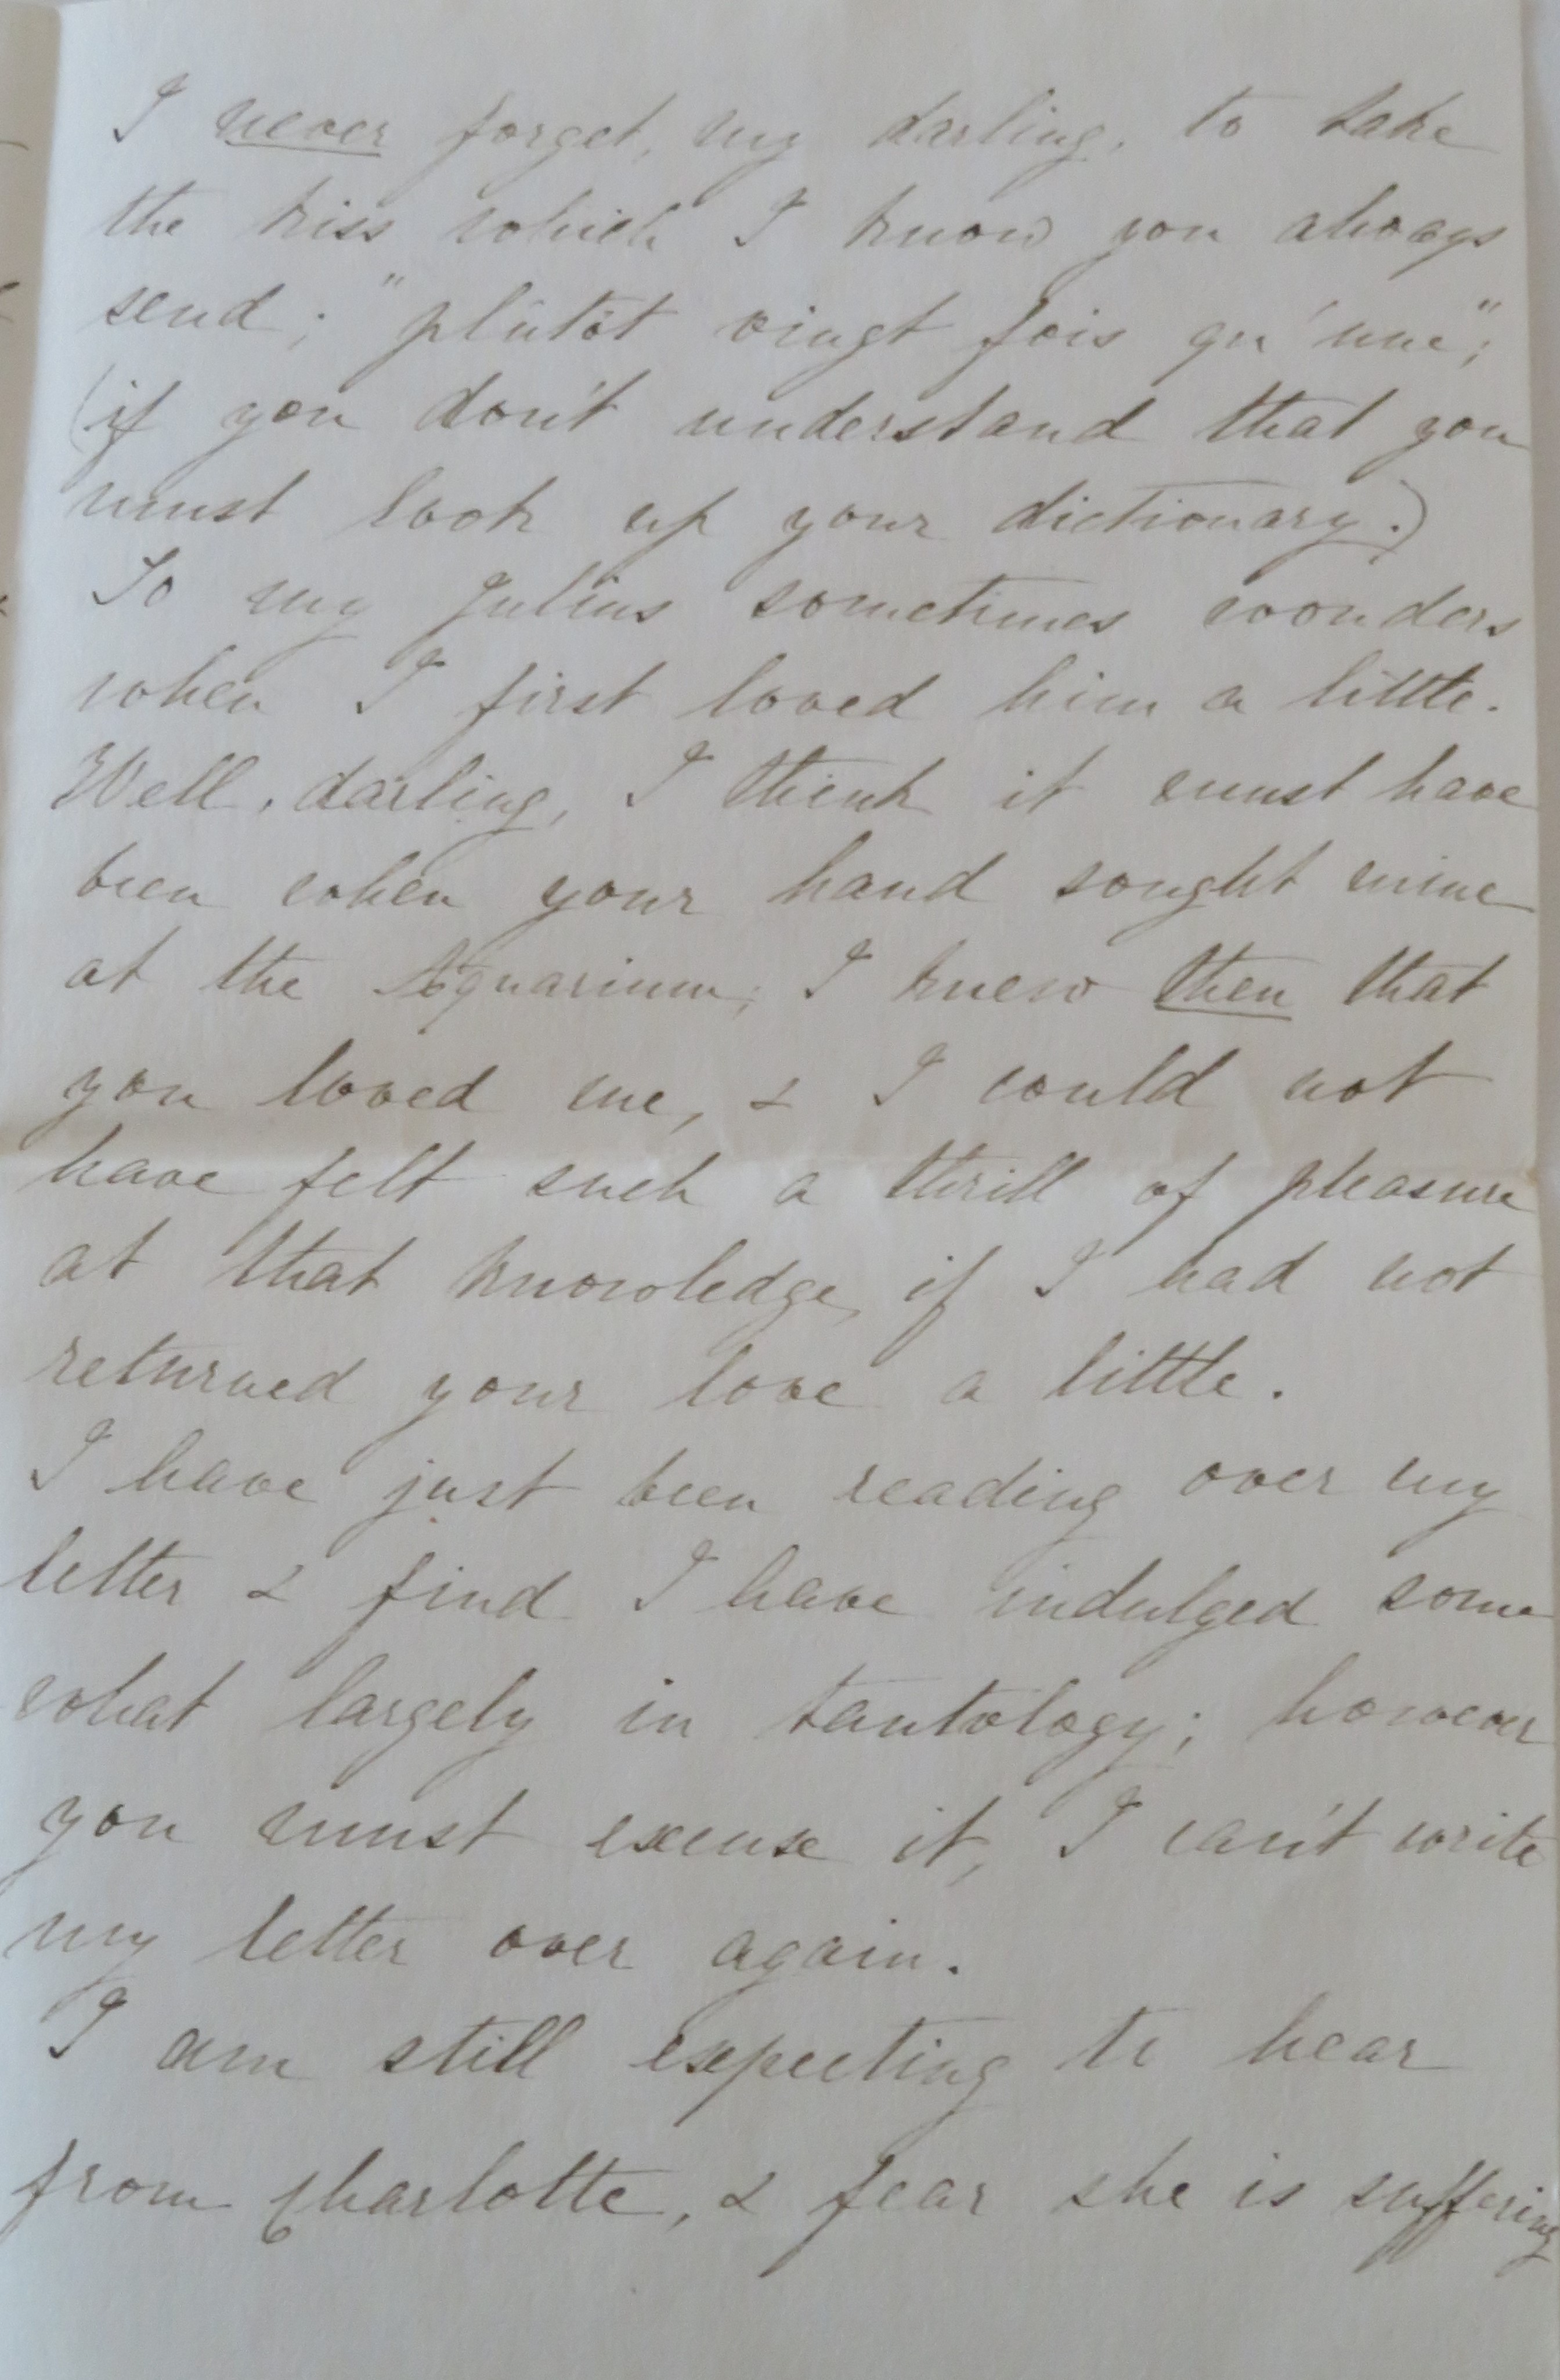 I never forget, my darling, to take
the kiss which I know you always
send; "plûtôt vingt fois qu'une";
(if you don't understand that you
must look up your dictionary.)
So my Julius sometimes wonders
when I first loved him a little.
Well, darling, I think it must have
been when your hand sought mine
at the Aquarium; I knew then that
you loved me, & I could not
have felt such a thrill of pleasure
at that knowledge, if I had not
returned your love a little.
I have just been reading over my
letter & find I have indulged some
what largely in tautology; however
you must excuse it, I can't write
my letter over again.
I am still expecting to hear
from Charlotte, & fear she is suffering